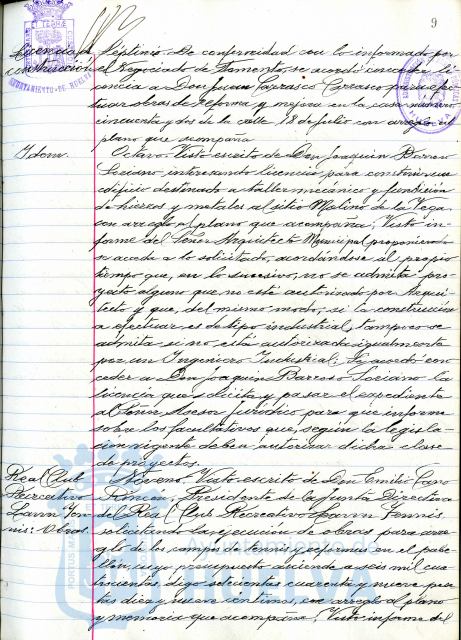 9
Licencia de
construcción
Séptimo. De conformidad con lo informado por
el Negociado de Fomento, se acordó conceder li-
cencia a Don Juan Carrasco Carrasco para efec-
tuar obras de reforma y mejora en la casa número
cincuenta y dos de la calle 18 de Julio con arreglo al
plano que acompaña.
Idem.
Octavo. Visto escrito de Don Joaquín Barroso
Sociano interesando licencia para construir un
edificio destinado a taller mecánico y fundición
de hierros y metales al sitio Molino de la Vega
con arreglo al plano que acompaña; Visto in-
forme del Señor Arquitecto Municipal proponiendo
se acceda a lo solicitado, acordándose al propio
tiempo que, en lo sucesivo, no se admita pro-
yecto alguno que no esté autorizado por Arqui-
tecto y que, del mismo modo, si la construcción
a efectuar es de tipo industrial, tampoco se
admita si no está autorizada igualmente
por un Ingeniero Industrial; Se acordó con-
ceder a Don Joaquín Barroso Sociano la
licencia que solicita y pasar el expediente
al Señor Asesor Jurídico para que informe
sobre los facultativos que, según la legisla-
ción vigente deben autorizar dicha clase
de proyectos.
Real Club
Recreativo
Lawn Ten-
nis: Obras.
Noveno. Visto escrito de Don Emilio Cano
Rincón, Presidente de la Junta Directiva
del Real Club Recreativo Lawn Tennis
solicitando la ejecución de obras para arre-
glo de los campos de tennis y reformas en el pabe-
llón, cuyo presupuesto asciende a seis mil cua-
trocientas, digo setecientas cuarenta y nueve pese-
tas diez y nueve céntimos, con arreglo al plano
y memoria que acompaña; Visto informe del
AYUNTAMIENTO DE HUELVA
HUELVA
Ayuntamiento de
HUELVA
PORTUS MARIS